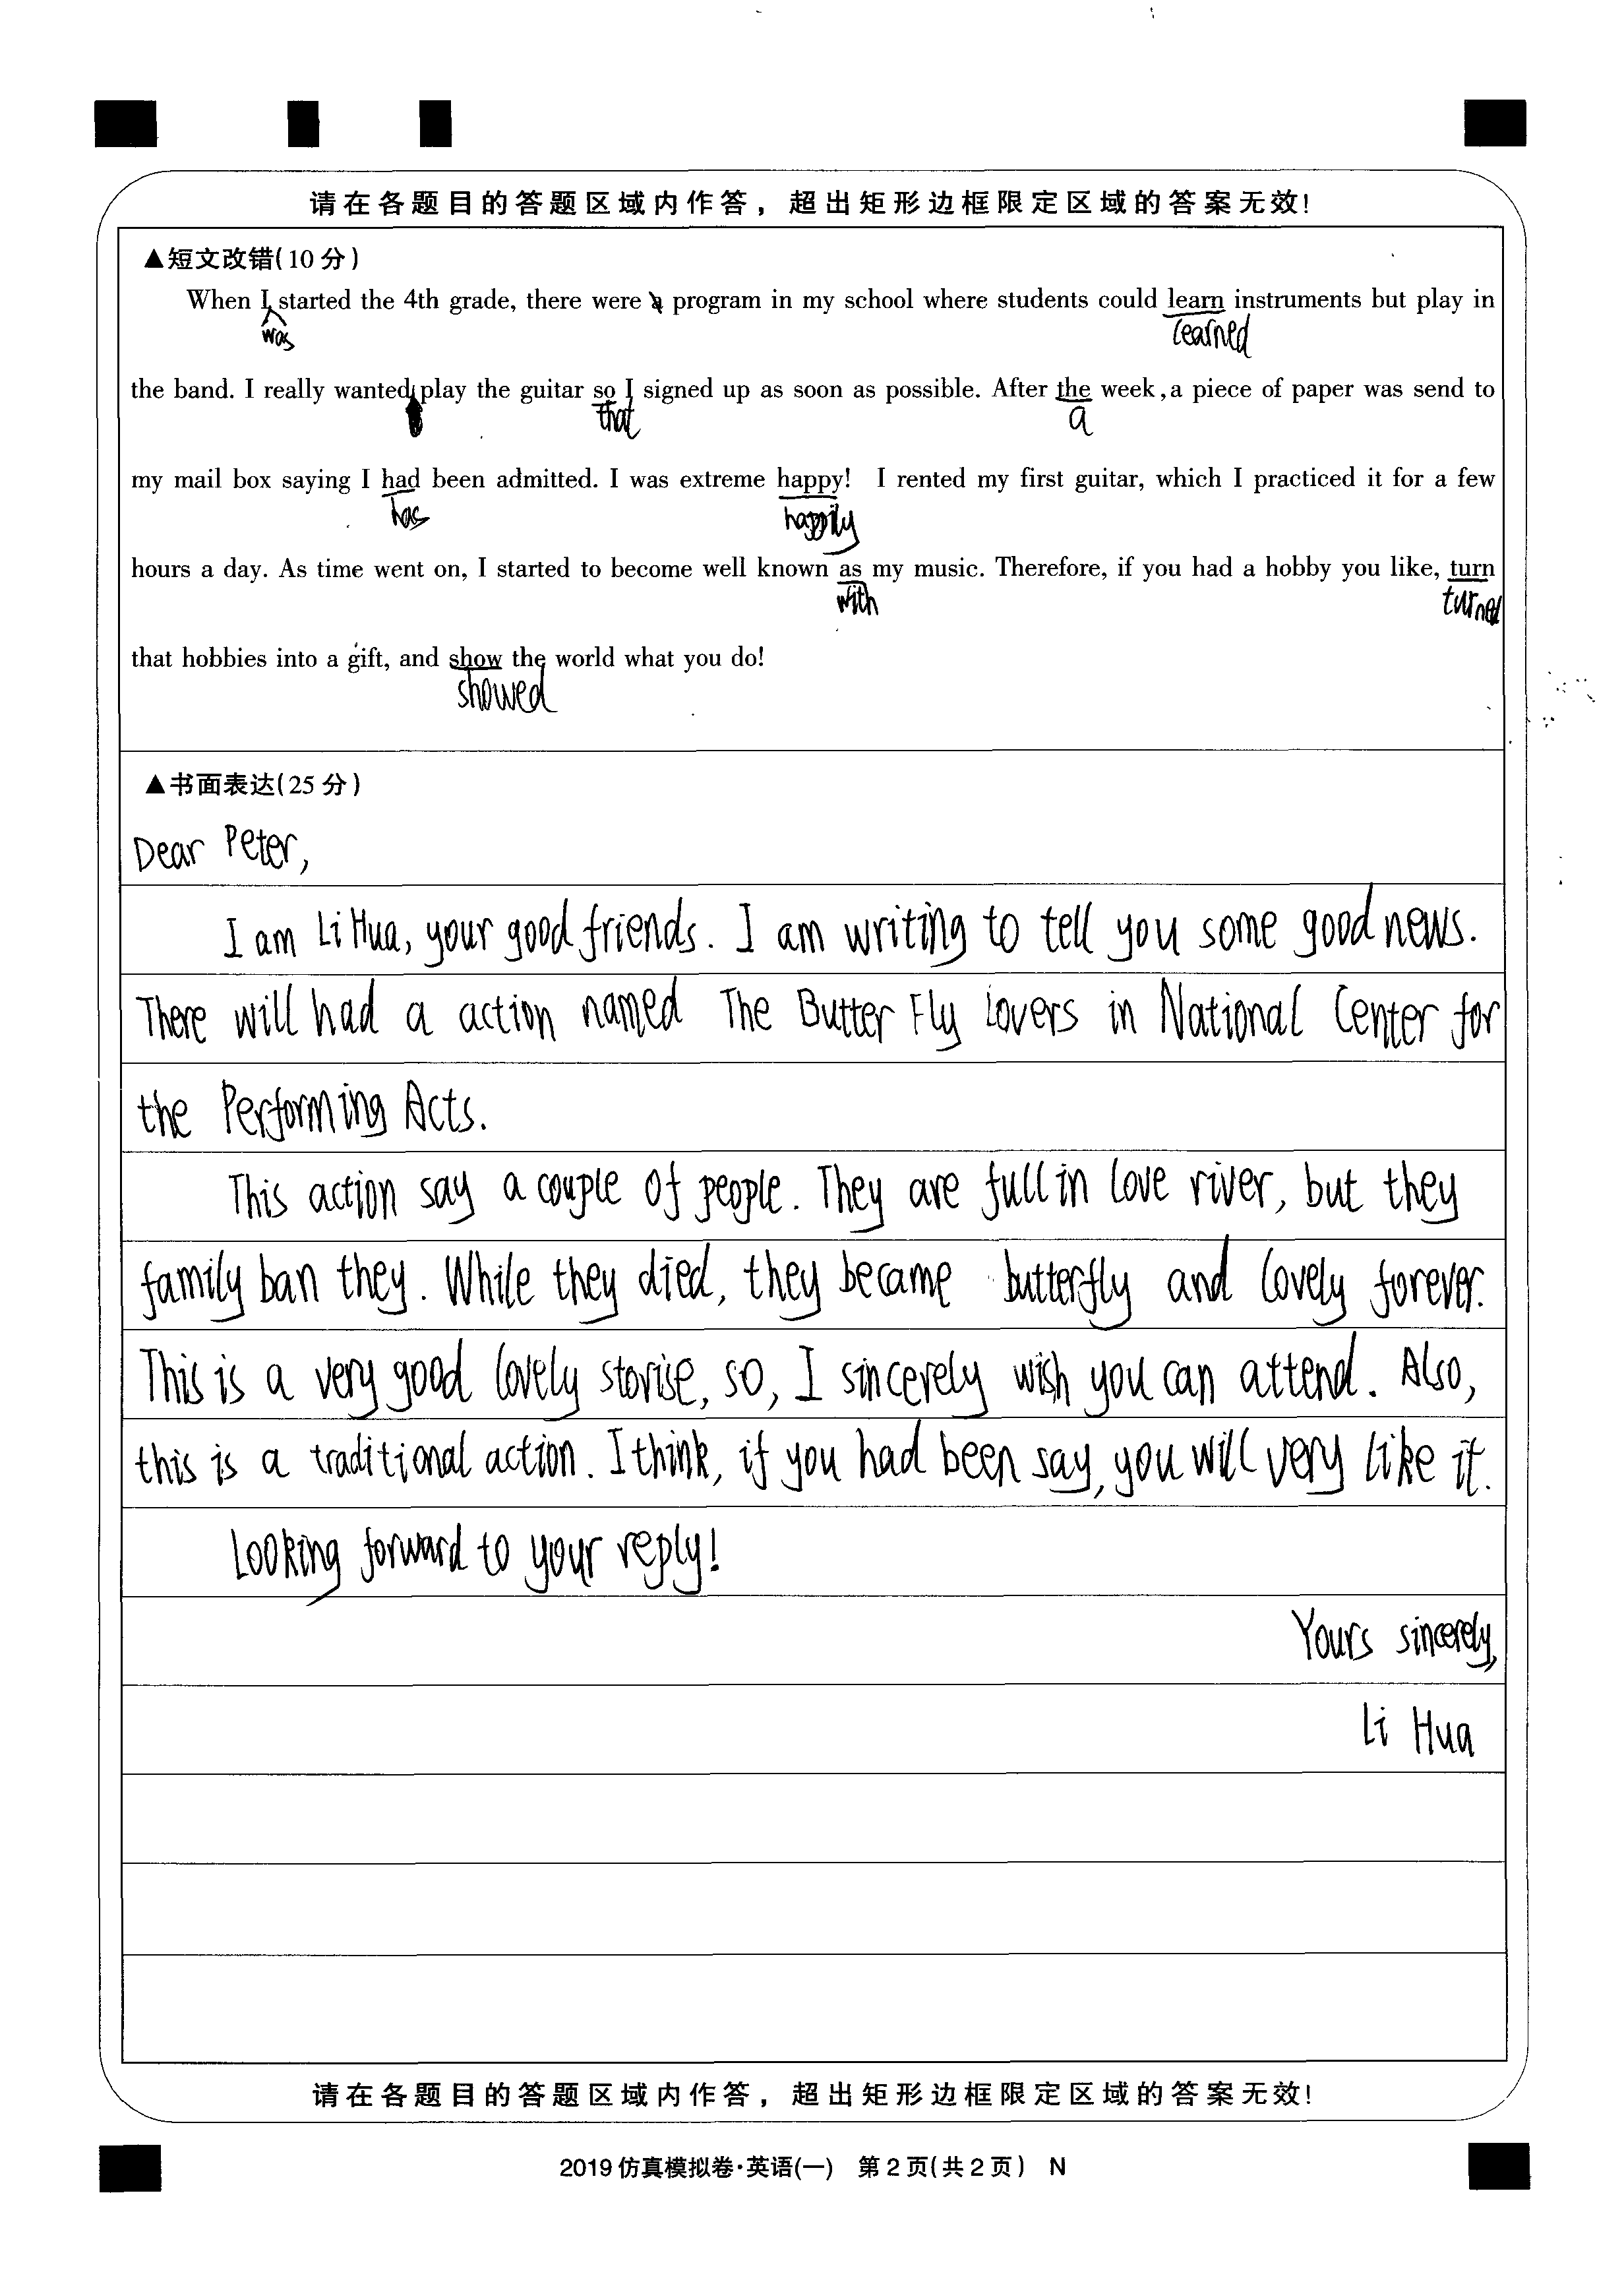 请在各题目的答题区域内作答，超出矩形边框限定区域的答案无效！
▲短文改错(10分)
When I started the 4th grade, there were a program in my school where students could learn instruments but play in
was learned
the band. I really wanted play the guitar so I signed up as soon as possible. After the week, a piece of paper was send to
that a
my mail box saying I had been admitted. I was extreme happy! I rented my first guitar, which I practiced it for a few
has happily
hours a day. As time went on, I started to become well known as my music. Therefore, if you had a hobby you like, turn
with turned
that hobbies into a gift, and show the world what you do!
showed
▲书面表达(25分)
Dear Peter,
I am Li Hua, your good friends. I am writing to tell you some good news.
There will had a action named The Butter Fly Lovers in National Center for
the Performing Acts.
This action say a couple of people. They are full in love river, but they
family ban they. While they died, they became butterfly and lovely forever.
This is a very good lovely storise, so, I sincerely wish you can attend. Also,
this is a traditional action. I think, if you had been say, you will very like it.
Looking forward to your reply!
Yours sincerely,
Li Hua
请在各题目的答题区域内作答，超出矩形边框限定区域的答案无效！
2019仿真模拟卷·英语(一) 第2页(共2页) N